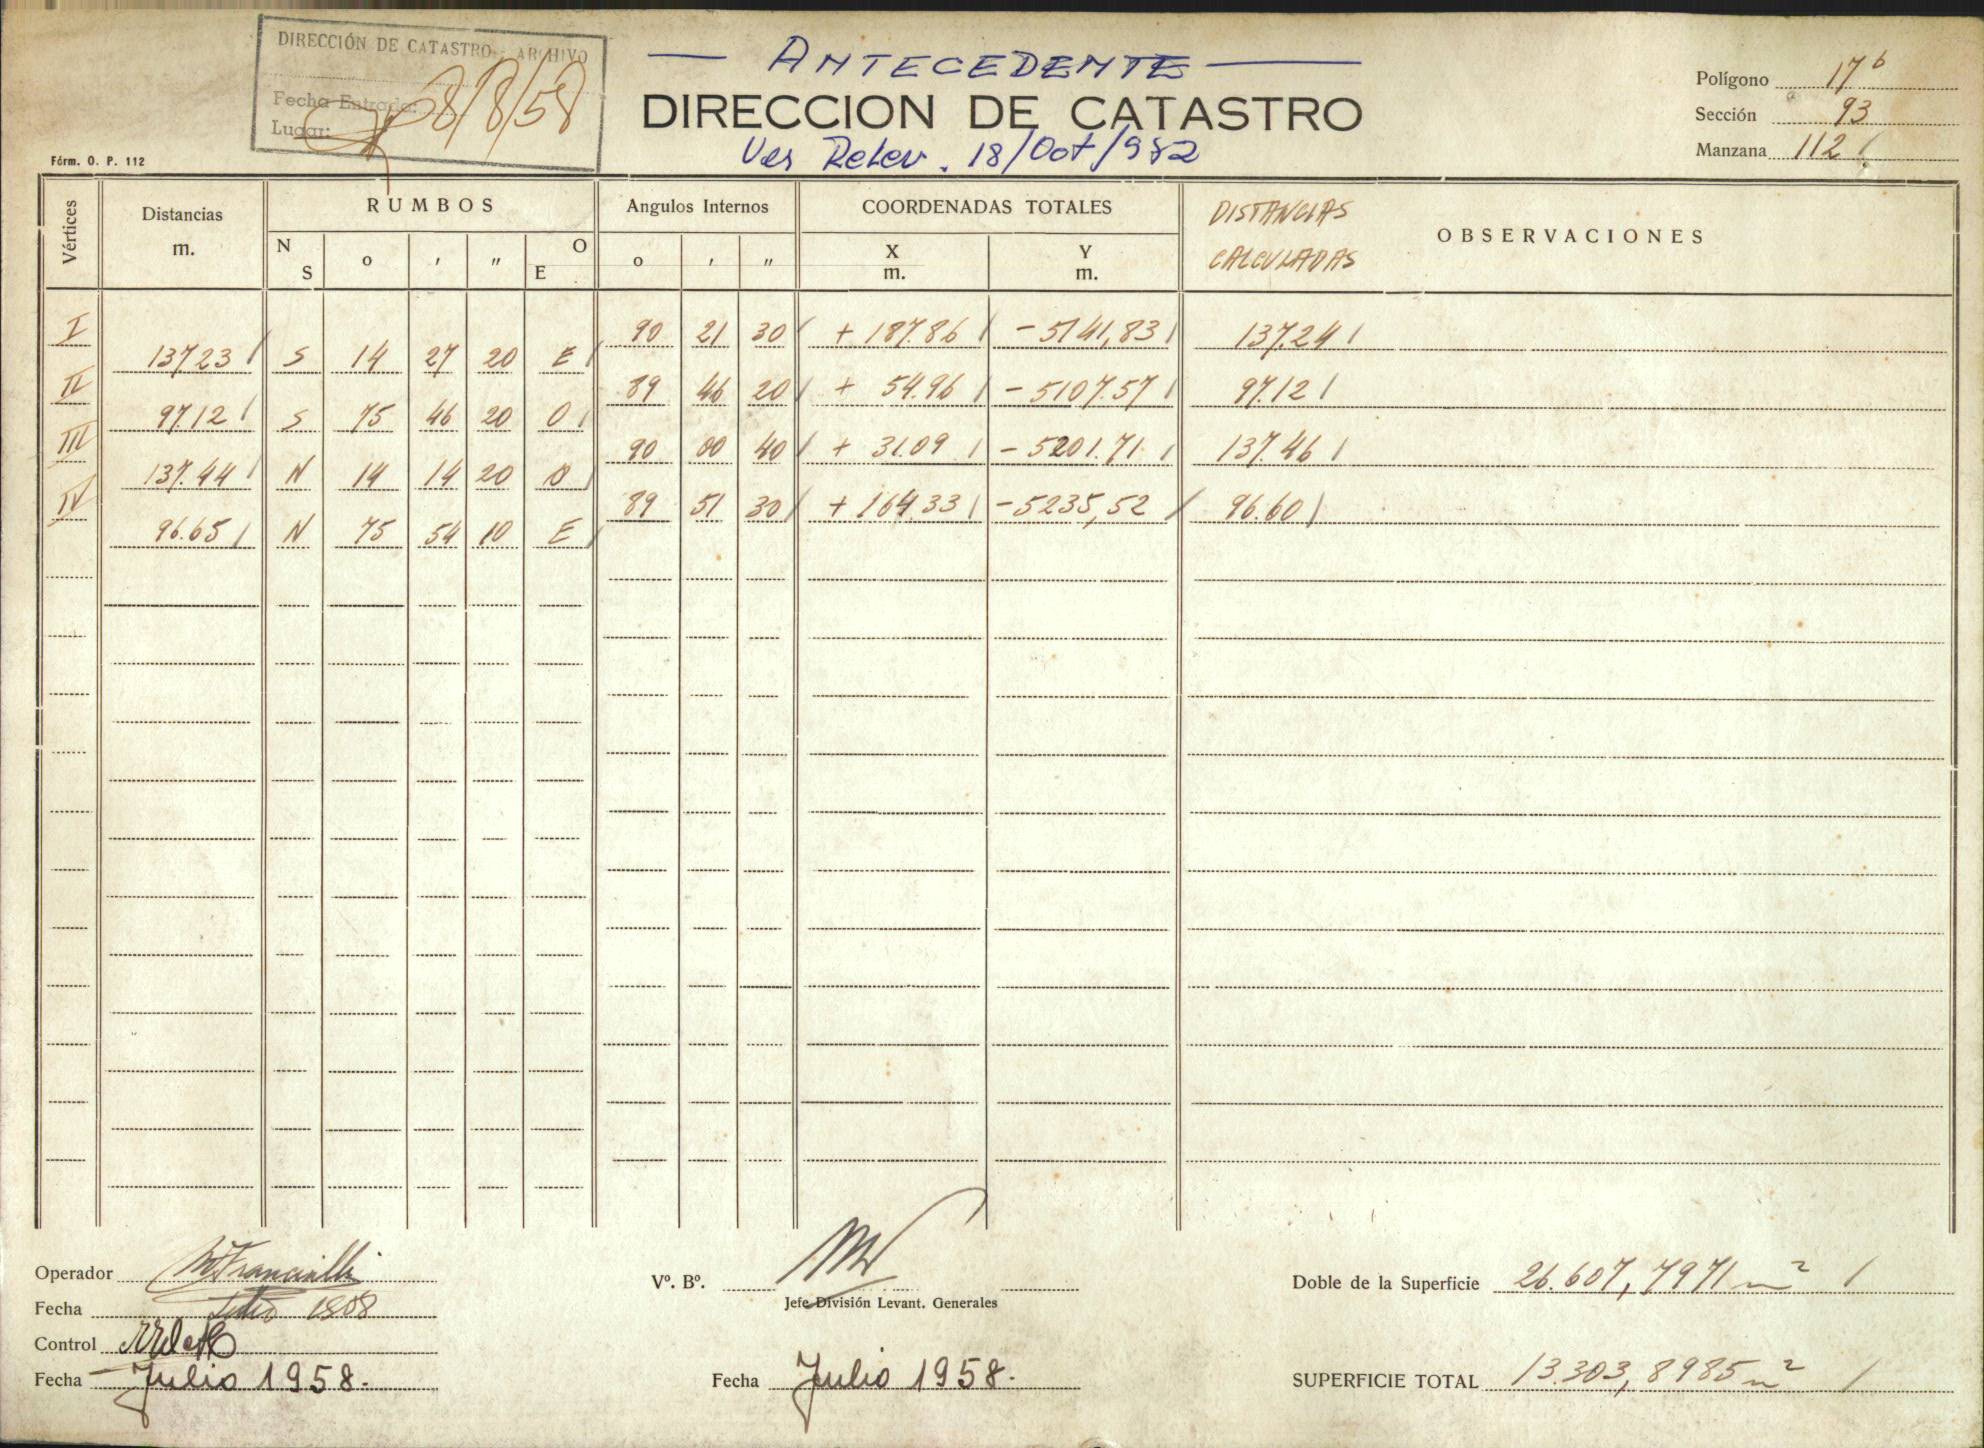 DIRECCIÓN DE CATASTRO - ARCHIVO
Fecha Entrada: 8/8/58
Lugar:
Fórm. O. P. 112
— ANTECEDENTE —
DIRECCION DE CATASTRO
Ver Relev. 18/Oct/982
Polígono 17 b
Sección 93
Manzana 112
Vértices Distancias m. RUMBOS Angulos Internos COORDENADAS TOTALES DISTANCIAS CALCULADAS OBSERVACIONES
N S o ' " O E o ' " X m. Y m.
I 90 21 30 + 187.86 - 5141,83 137.24
137.23 S 14 27 20 E
II 89 46 20 + 54.96 - 5107.57 97.12
97.12 S 75 46 20 O
III 90 00 40 + 31.09 - 5201.71 137.46
137.44 N 14 14 20 O
IV 89 51 30 + 164.33 - 5235,52 96.60
96.65 N 75 54 10 E
Operador
Fecha Julio 1958
Control
Fecha Julio 1958.
Vº. Bº.
Jefe División Levant. Generales
Fecha Julio 1958.
Doble de la Superficie 26.607,7971 m²
SUPERFICIE TOTAL 13.303,8985 m²